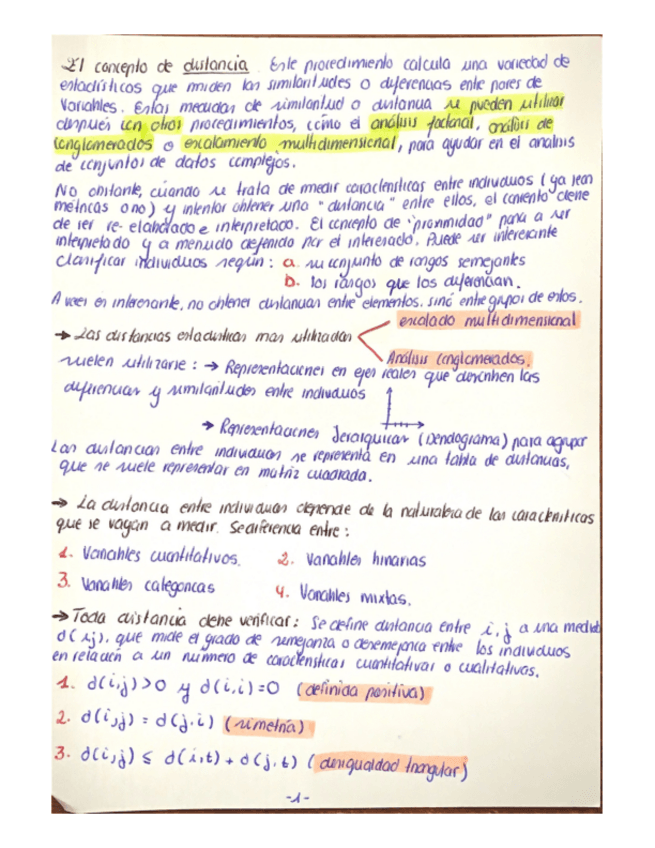 El concepto de distancia. Este procedimiento calcula una variedad de
estadísticos que miden las similaritudes o diferencias ente pares de
Variables. Estas medidas de similaritud o distancia se pueden utilizar
después con otros procedimientos, cómo el análisis factorial, análisis de
conglomerados o escalamiento multidimensional, para ayudar en el analisis
de conjuntos de datos complejos.
No obstante, cuando se trata de medir características entre individuos (ya sean
métricas o no) y intentar obtener una "distancia" entre ellos, el concepto
de ser re-elaborado e interpretado. El concepto de "proximidad" pasa a ser
interpretado y a menudo definido por el interesado. Puede ser interesante
clasificar individuos según: a. su conjunto de rasgos semejantes
b. los rasgos que los diferencian.
A veces es interesante, no obtener distancias entre elementos, sinó entre grupos de estos.
escalado multidimensional
→ Las distancias estadísticas mas utilizadas
Análisis conglomerados.
suelen utilizarse: → Representaciones en ejes reales que describen las
diferencias y similaritudes entre individuos
→ Representaciones Jerarquicas (Dendograma) para agrupar
Las distancias entre individuos se representa en una tabla de distancias,
que se suele representar en matriz cuadrada.
→ La distancia entre individuos depende de la naturaleza de las características
que se vayan a medir. Se diferencia entre:
1. Variables cuantitativas. 2. Variables binarias
3. Variables categoricas 4. Variables mixtas.
→ Toda distancia debe verificar: Se define distancia entre i, j a una medida
d(ij), que mide el grado de semejanza o desemejanza entre los individuos
en relación a un número de características cuantitativas o cualitativas.
1. d(i,j) > 0 y d(i,i) = 0 (definida positiva)
2. d(i,j) = d(j,i) (simetría)
3. d(i,j) ≤ d(i,t) + d(j,t) (desigualdad triangular)
-1-